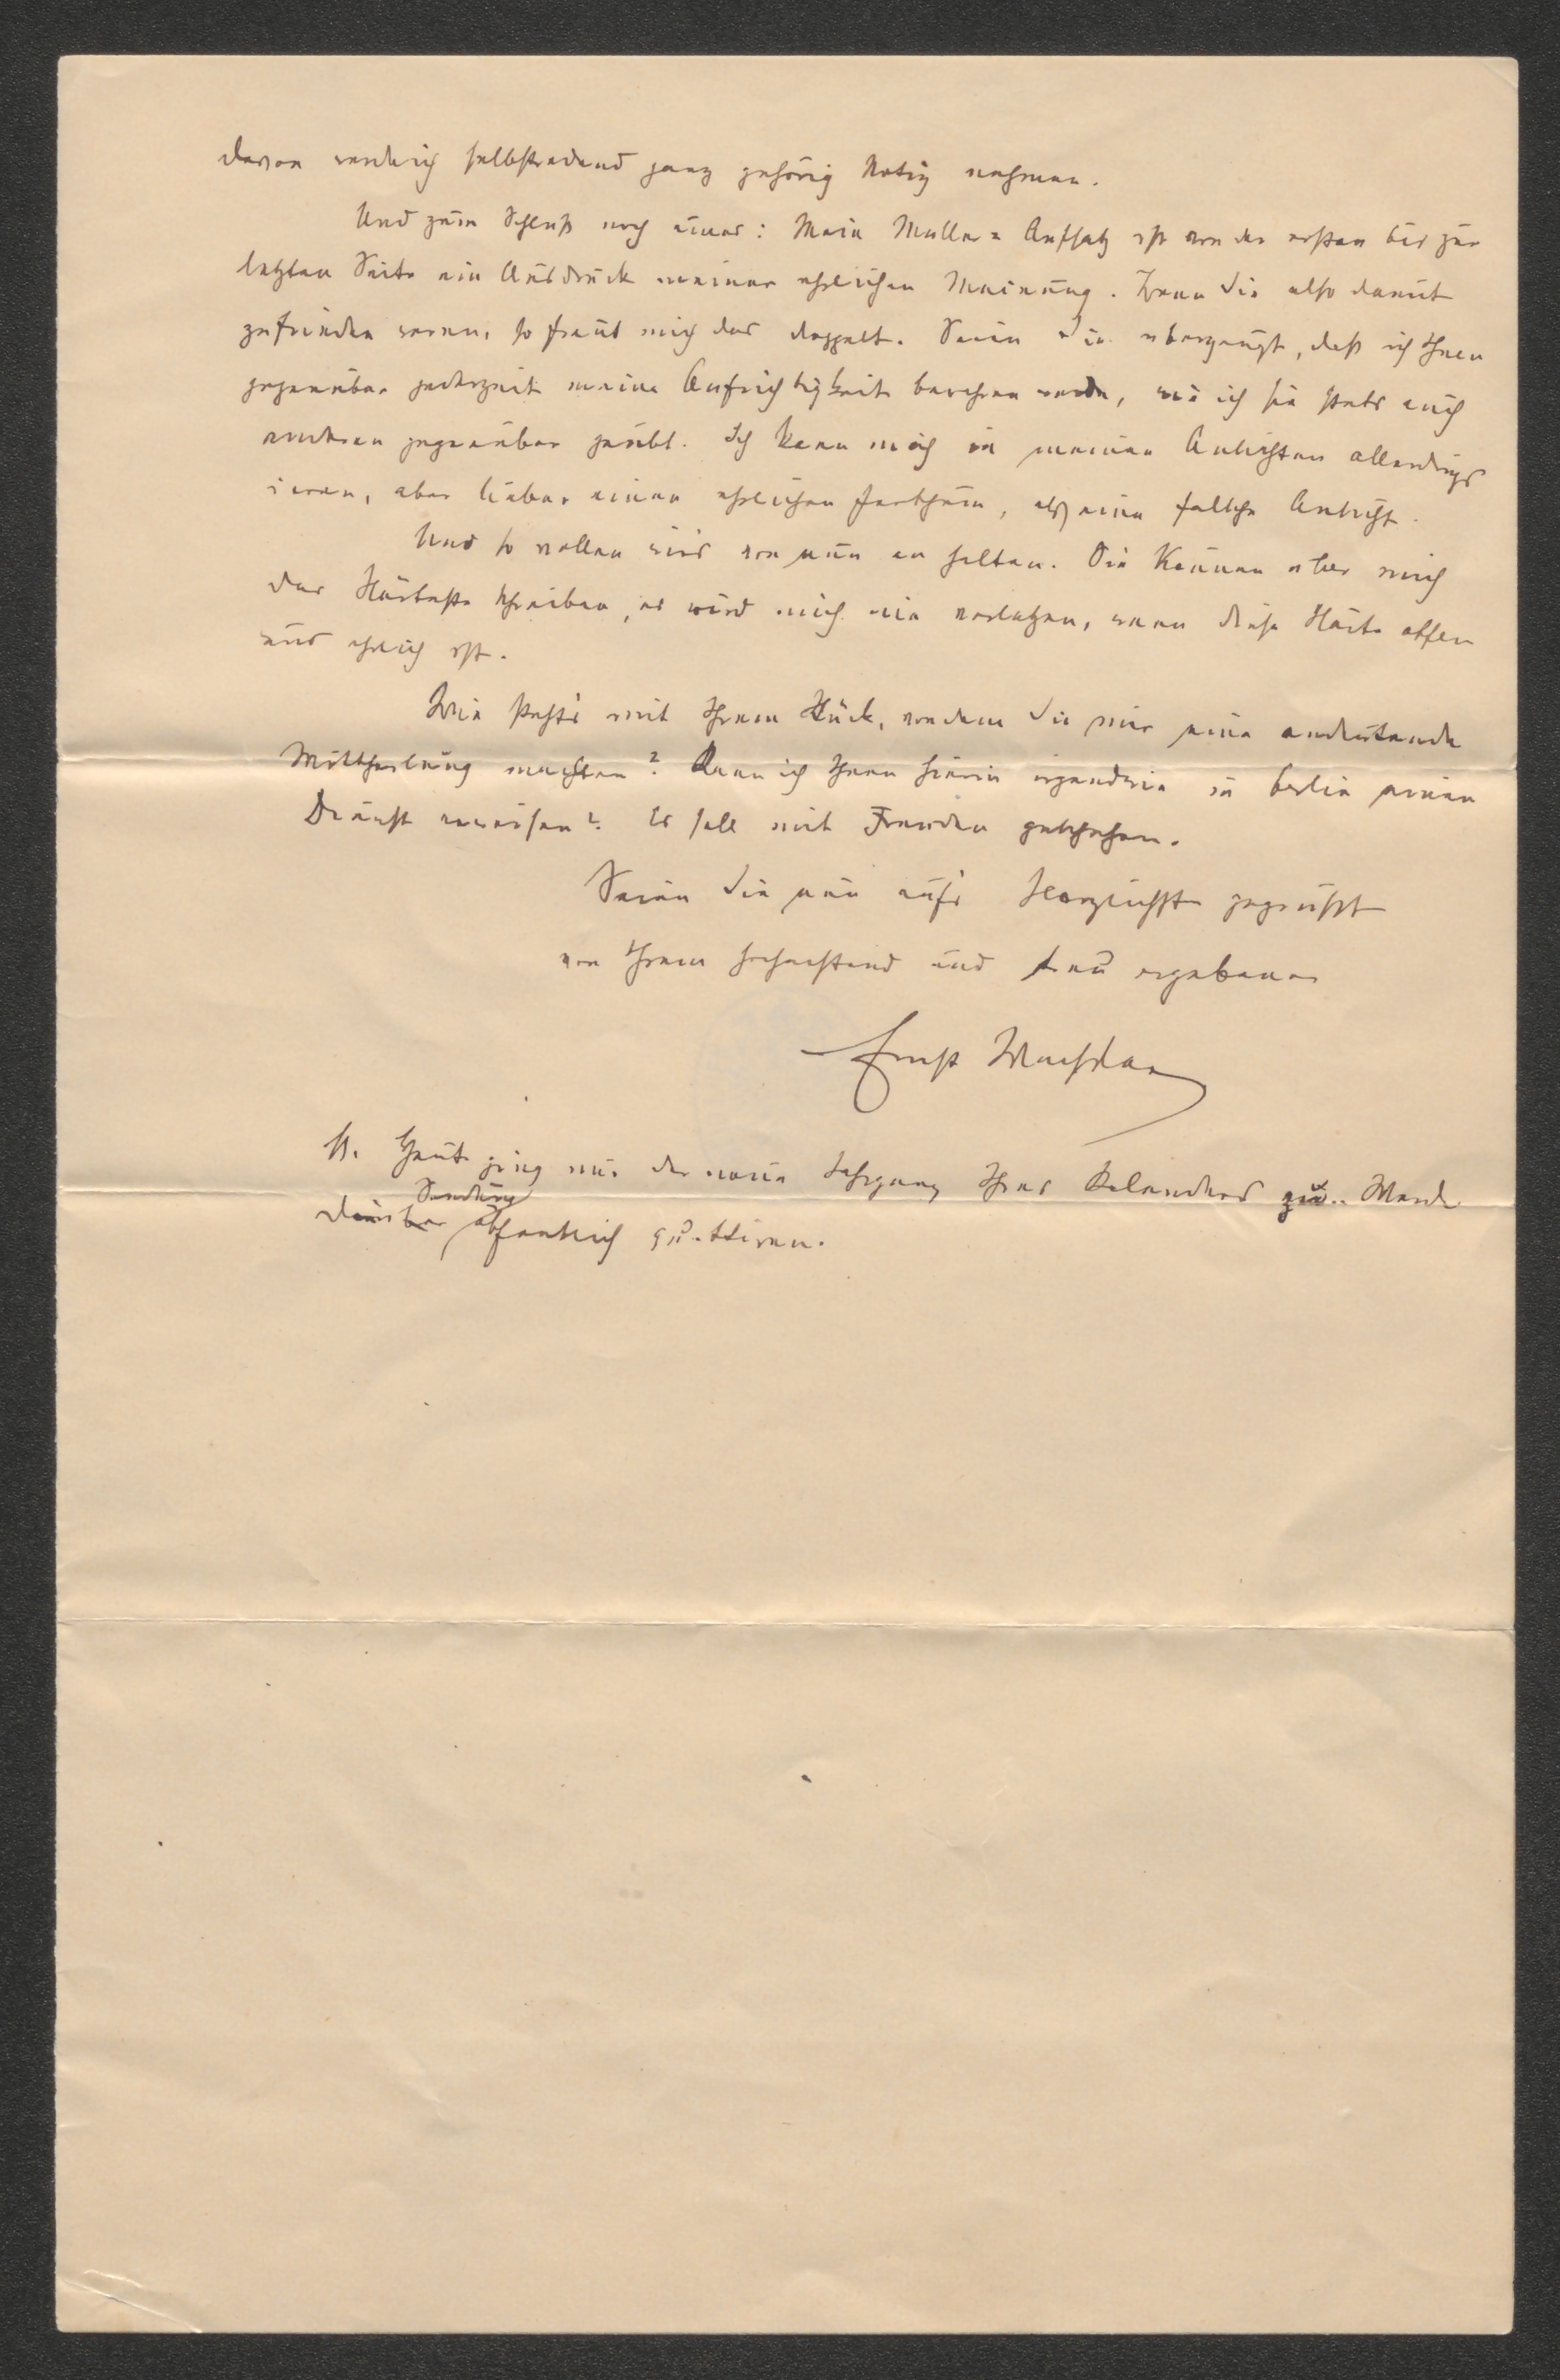 davon werde ich selbstredend ganz gehörig Notiz nehmen.
Und zum Schluß noch eines: Mein Müller-Aufsatz ist von der ersten bis zur
letzten Seite ein Ausdruck meiner ehrlichen Meinung. Wenn Sie also damit
zufrieden waren, so freut mich das doppelt. Seien Sie überzeugt, daß ich Ihnen
gegenüber jederzeit meine Aufrichtigkeit bewahren werde, wie ich sie stets auch
anderen gegenüber geübt. Ich kann mich in meinen Ansichten allerdings
irren, aber lieber einen ehrlichen Irrthum, als eine falsche Ansicht.
Und so wollen wirs von nun an halten. Sie können über mich
das Härteste schreiben, es wird mich nie verletzen, wenn diese Härte offen
und ehrlich ist.
Wie steht's mit Ihrem Stück, von dem Sie mir eine andeutende
Mittheilung machten? Kann ich Ihnen hierin irgendwie in Berlin einen
Dienst erweisen? Es soll mit Freuden geschehen.
Seien Sie nun auf's Herzlichste gegrüßt
von Ihrem hochachtend und treu ergebenen
Ernst Wechsler
Heute ging mir der neue Jahrgang Ihres Kalenders zu. Werde
Sendung
darüber öffentlich quittiren.